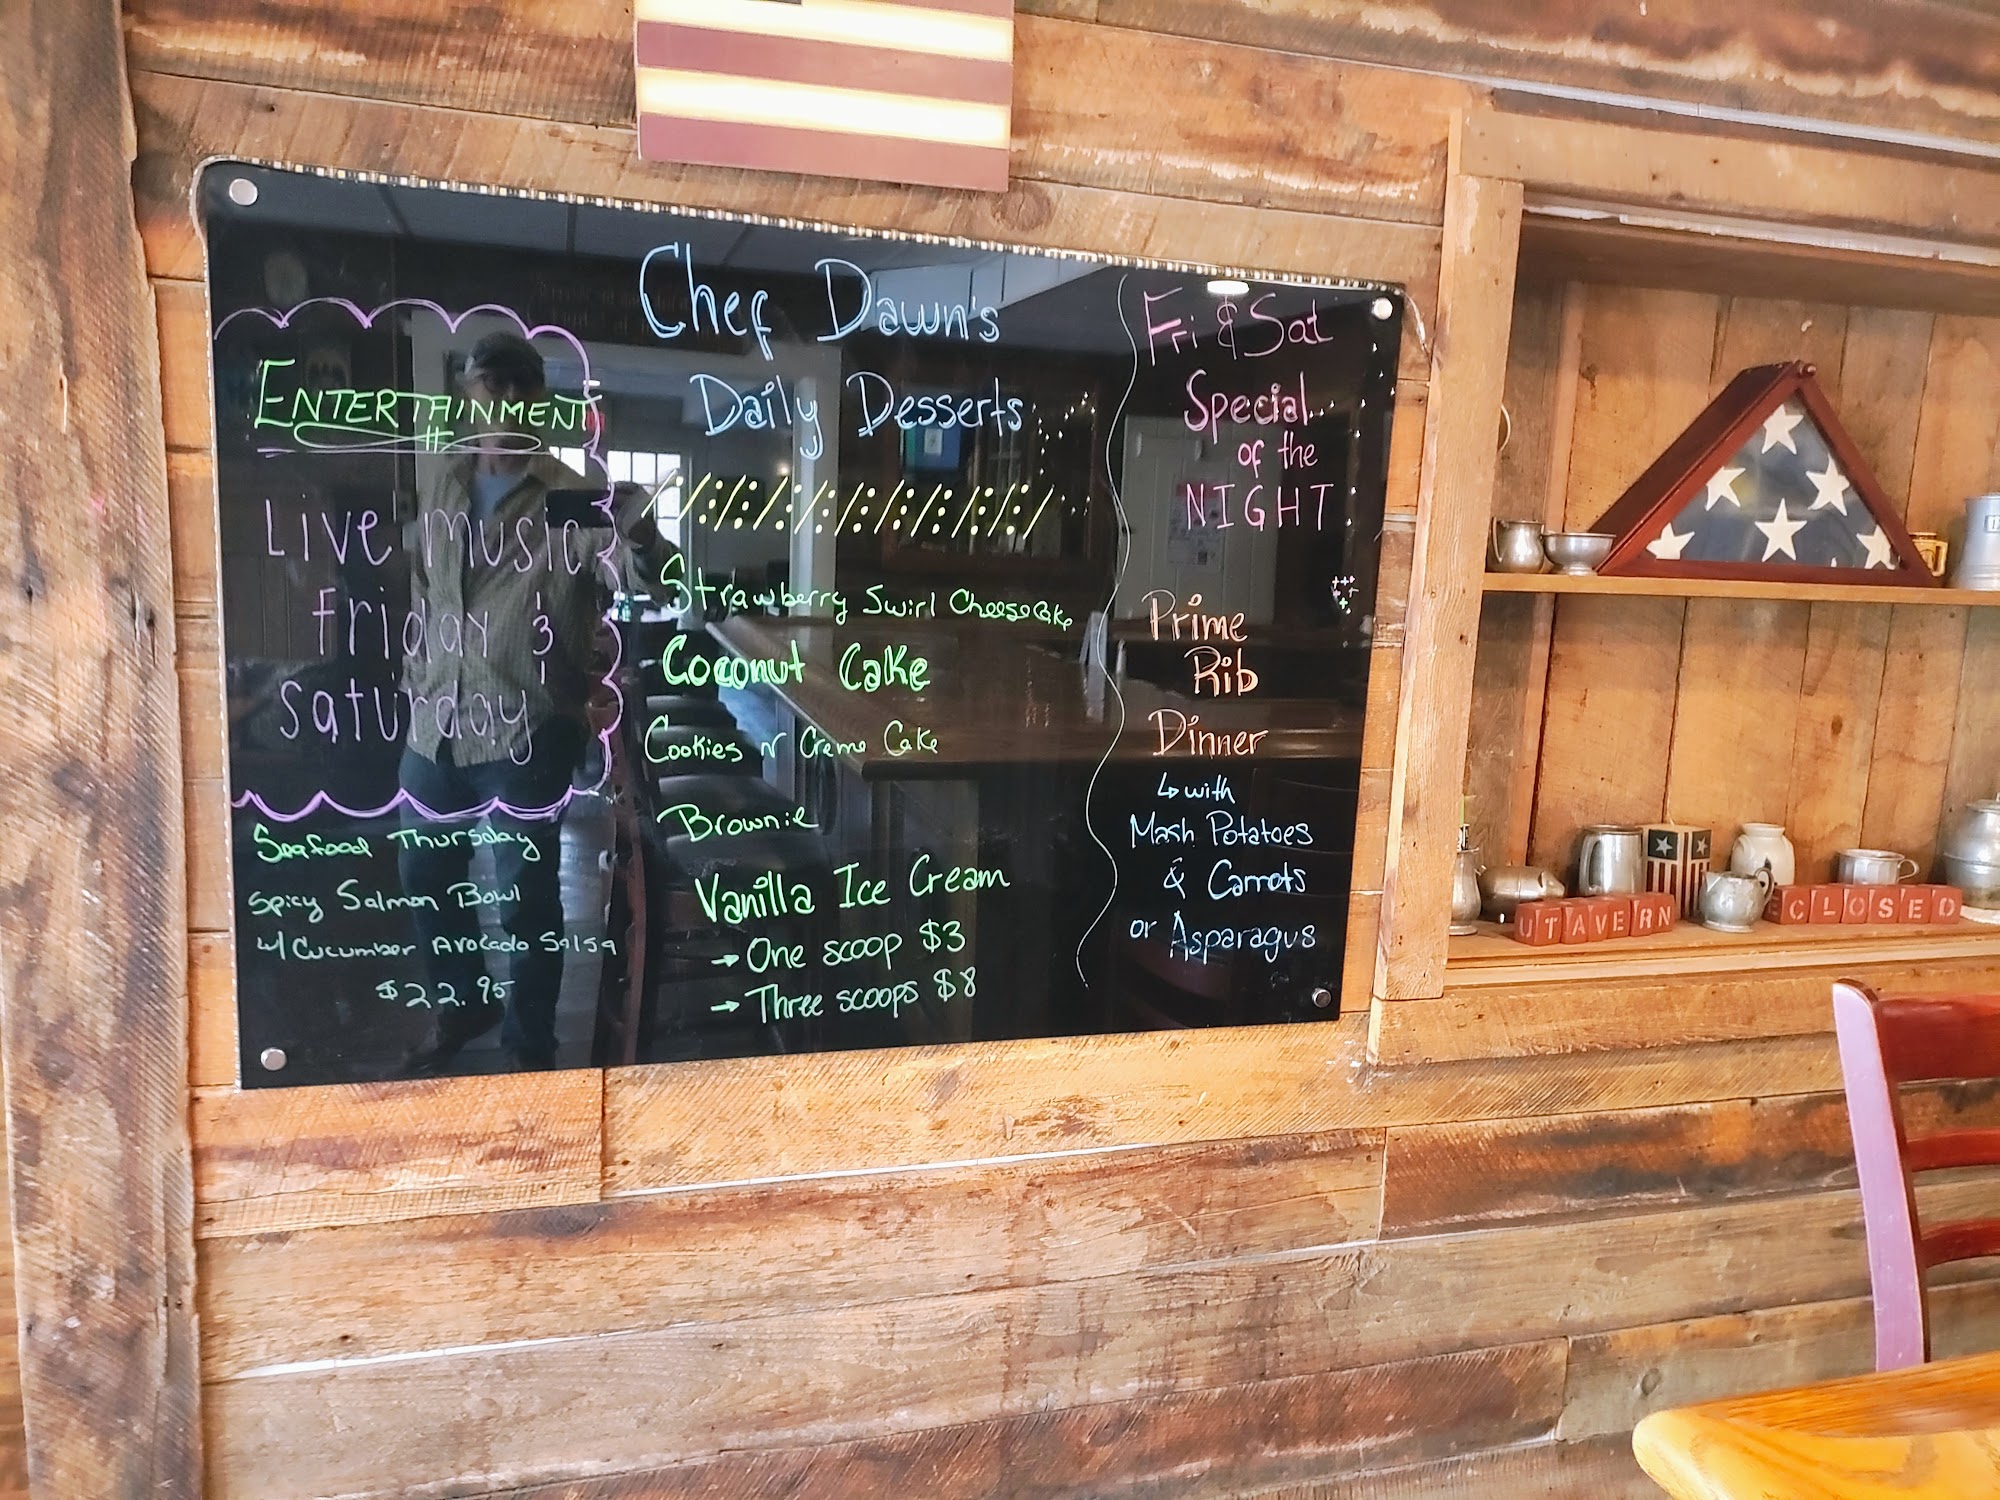 ENTERTAINMENT
Live music
friday &
saturday
Seafood Thursday
Spicy Salmon Bowl
w/ Cucumber Avocado Salsa
$22.95
Chef Dawn's
Daily Desserts
Strawberry Swirl Cheesecake
Coconut Cake
Cookies N Creme Cake
Brownie
Vanilla Ice Cream
→ One scoop $3
→ Three scoops $8
Fri & Sat
Special
of the
NIGHT
Prime
Rib
Dinner
↳ with
Mash Potatoes
& Carrots
or Asparagus
UTAVERN
ECLOSED